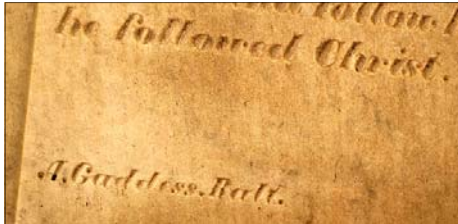 and follow
he followed Christ.
A.Gaddess.Balt.